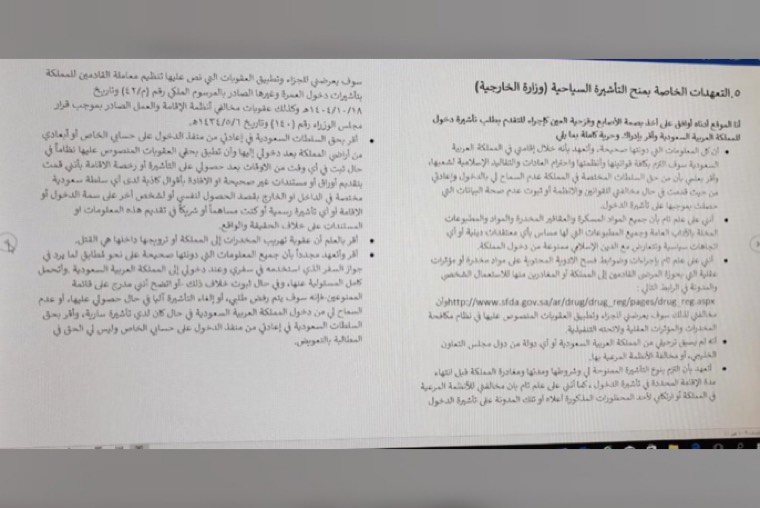 ٥.التعهدات الخاصة بمنح التأشيرة السياحية (وزارة الخارجية)
أنا الموقع أدناه أوافق على أخذ بصمة الأصابع وقزحية العين كإجراء للتقدم بطلب تأشيرة دخول
للمملكة العربية السعودية وأقر بإدراك وحرية كاملة بما يلي
• أن كل المعلومات التي دونتها صحيحة، وأتعهد بأنه خلال إقامتي في المملكة العربية
السعودية سوف التزم بكافة قوانينها وأنظمتها واحترام العادات والتقاليد الإسلامية لشعبها،
وأقر بعلمي بأن من حق السلطات المختصة في المملكة عدم السماح لي بالدخول وإعادتي
من حيث قدمت في حال مخالفتي للقوانين والأنظمة أو ثبوت عدم صحة البيانات التي
حصلت بموجبها على تأشيرة الدخول.
• أنني على علم تام بأن جميع المواد المسكرة والعقاقير المخدرة والمواد والمطبوعات
المخلة بالآداب العامة وجميع المطبوعات التي لها مساس بأي معتقدات دينية أو أي
اتجاهات سياسية وتتعارض مع الدين الإسلامي ممنوعة من دخول المملكة.
• أنني على علم تام بإجراءات وضوابط فسح الأدوية المحتوية على مواد مخدرة أو مؤثرات
عقلية التي بحوزة المرضى القادمين إلى المملكة أو المغادرين منها للاستعمال الشخصي
والمدونة في الرابط التالي :
http://www.sfda.gov.sa/ar/drug/drug_reg/pages/drug_reg.aspxوان
مخالفتي لذلك سوف يعرضني للجزاء وتطبيق العقوبات المنصوص عليها في نظام مكافحة
المخدرات والمؤثرات العقلية ولائحته التنفيذية.
• أنه لم يسبق ترحيلي من المملكة العربية السعودية أو أي دولة من دول مجلس التعاون
الخليجي، أو مخالفة الأنظمة المرعية بها.
• أتعهد بأن التزم بنوع التأشيرة الممنوحة لي وشروطها ومدتها ومغادرة المملكة قبل انتهاء
مدة الإقامة المحددة في تأشيرة الدخول ، كما أنني على علم تام بان مخالفتي للأنظمة المرعية
في المملكة أو ارتكابي لأحد المحظورات المذكورة أعلاه أو تلك المدونة على تأشيرة الدخول
سوف يعرضني للجزاء وتطبيق العقوبات التي نص عليها تنظيم معاملة القادمين للمملكة
بتأشيرات دخول العمرة وغيرها الصادر بالمرسوم الملكي رقم (م/٤٢) وتاريخ
١٤٠٤/١٠/١٨هـ وكذلك عقوبات مخالفي أنظمة الإقامة والعمل الصادر بموجب قرار
مجلس الوزراء رقم (١٤٠) وتاريخ ١٤٣٤/٥/٦هـ.
• أقر بحق السلطات السعودية في إعادتي من منفذ الدخول على حسابي الخاص أو أبعادي
من أراضي المملكة بعد دخولي إليها وأن تطبق بحقي العقوبات المنصوص عليها نظاماً في
حال ثبت في أي وقت من الأوقات بعد حصولي على التأشيرة أو رخصة الاقامة بأنني قمت
بتقديم أوراق أو مستندات غير صحيحة أو الافادة بأقوال كاذبة لدى أي سلطة سعودية
مختصة في الداخل او الخارج بقصد الحصول لنفسي أو لشخص آخر على سمة الدخول أو
الاقامة أو أي تأشيرة رسمية أو كنت مساهماً أو شريكاً في تقديم هذه المعلومات او
المستندات على خلاف الحقيقة والواقع.
• أقر بالعلم أن عقوبة تهريب المخدرات إلى المملكة أو ترويجها داخلها هي القتل.
• أقر وأتعهد مجدداً بأن جميع المعلومات التي دونتها صحيحة على نحو مطابق لما يرد في
جواز السفر الذي استخدمه في سفري وعند دخولي إلى المملكة العربية السعودية .وأتحمل
كامل المسئولية عنها، وفي حال ثبوت خلاف ذلك ،أو اتضح أنني مدرج على قائمة
الممنوعين فإنه سوف يتم رفض طلبي، أو إلغاء التأشيرة آليا في حال حصولي عليها، أو عدم
السماح لي من دخول المملكة العربية السعودية في حال كان لدي تأشيرة سارية، وأقر بحق
السلطات السعودية في إعادتي من منفذ الدخول على حسابي الخاص وليس لي الحق في
المطالبة بالتعويض.